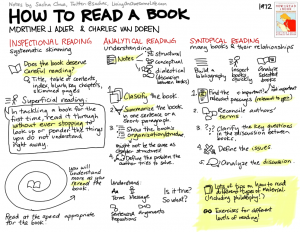 Notes by Sacha Chua, Twitter @sachac, LivingAnAwesomeLife.com
1972
HOW TO READ A BOOK
MORTIMER J. ADLER & CHARLES VAN DOREN
INSPECTIONAL READING
systematic skimming
Does the book deserve
careful reading?
Title, table of contents,
index, blurb, key chapters,
skimmed pages
Superficial reading
In tackling a book for the
first time, read it through
without ever stopping to
look up or ponder the things
you do not understand
right away.
you will
understand
more as you
reread the
book
Read at the speed appropriate
for the book!
ANALYTICAL READING
understanding
Notes
structural
conceptual
dialectical
(discussion
between texts)
Classify the book
Summarize the book
in one sentence or a
short paragraph
Show the book's
organization/structure
might not be the same as
chapter structure!
Define the problem the
author tries to solve.
Understand:
Terms
Message
Sentences
Propositions
Arguments
Is it true?
So what?
SYNTOPICAL READING
many books & their relationships
Build a
bibliography
Inspect
all the
books
Select
1. Find the
relevant passages
2. Reconcile authors'
terms
3. Clarify the key questions
in the discussion between
books
4. Define the issues
5. Analyze the discussion
Lots of tips on how to read
different types of material
(including philosophy!)
Exercises for different
levels of reading!